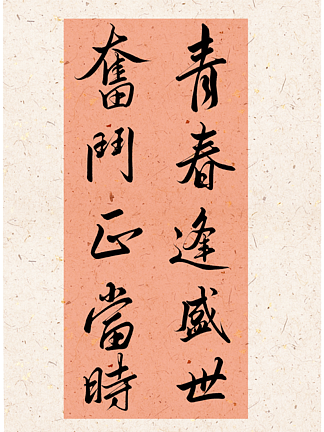 青春逢盛世
奮鬥正當時